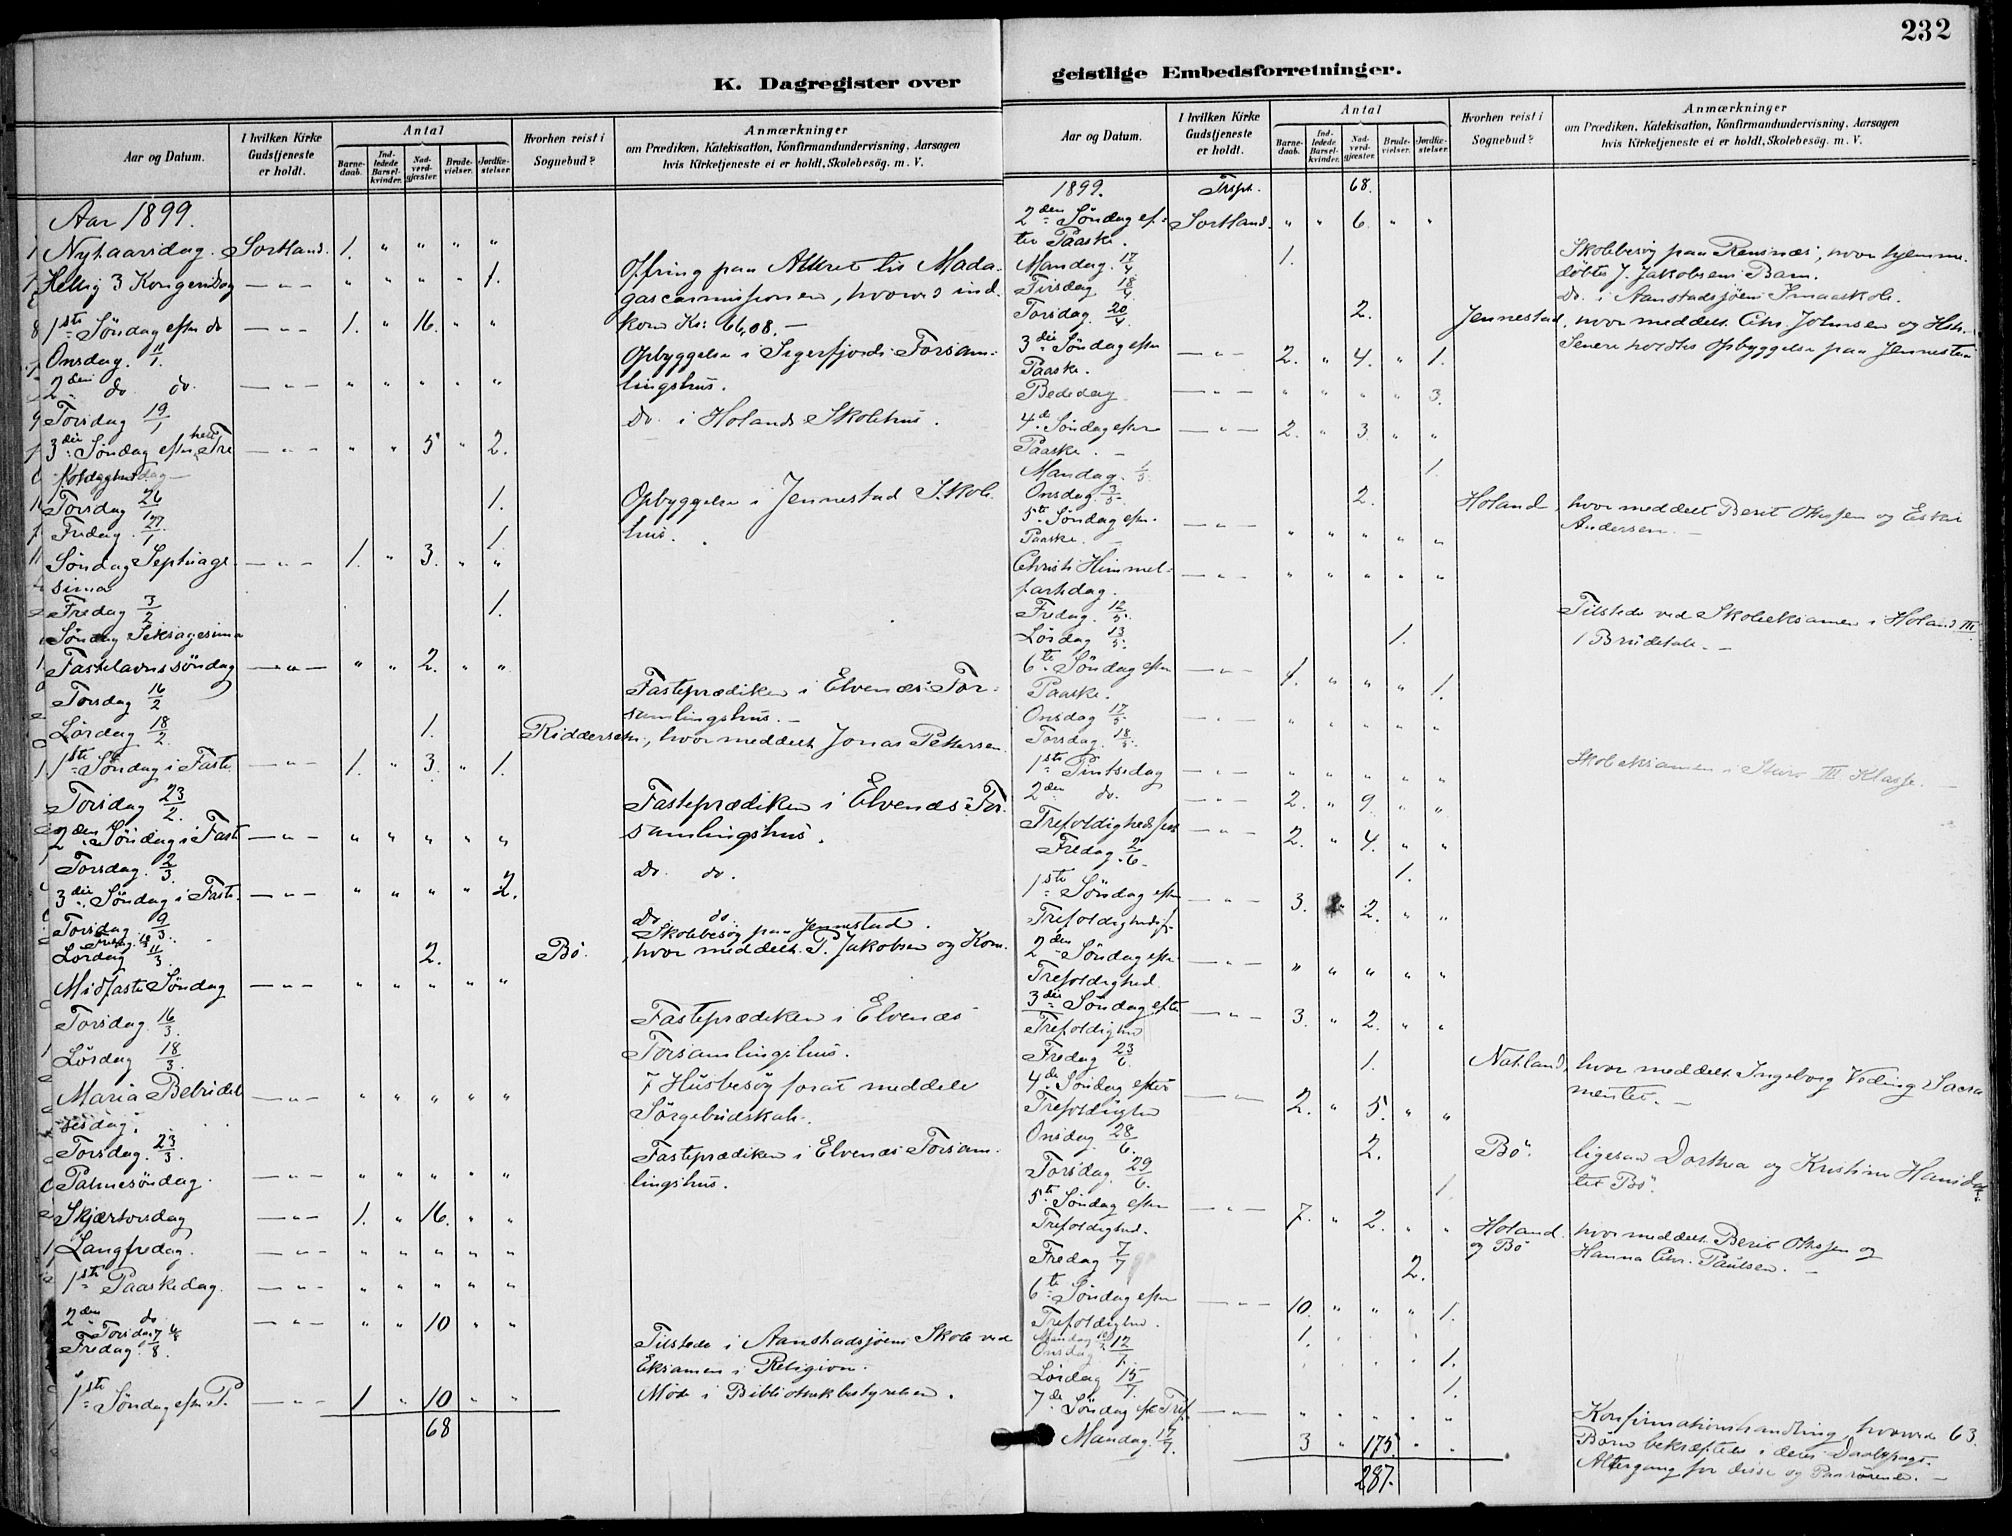 232
K. Dagregister over
geistlige Embedsforretninger.
Aar og Datum.
I hvilken Kirke Gudstjeneste er holdt.
Antal
Barnedaab.
Indledede Barselkvinder.
Nadverdgjæster.
Brudevielser.
Jordfæstelser.
Hvorhen reist i Sognebud?
Anmærkninger
om Prædiken, Katekisation, Konfirmandundervisning, Aarsagen
hvis Kirketjeneste ei er holdt, Skolebesög. m. V.
Aar 1899.
Nytaarsdag. Sortland. 1. " " " "
Hellig 3 Kongersdag — " — " " " " 1. Offring paa Alteret til Mada-
gascarmissionen, hvorved ind-
1ste Søndag efter do — " — 1. " 16. " " kom Kr: 66,08. —
Onsdag. 11/1. Opbyggelse i Sigerfjords Forsam-
2den do do. — " — " " " " " lingshus.
Torsdag 19/1 Do. i Holands Skolehus.
3die Søndag efter hell. Tre — " — " " 5 " 2.
Torsdag 26/1 1. Opbyggelse i Jennestad Skole-
Fredag. 27/1. 1. hus.
Søndag Septuage- — " — 1. " 3. " "
sima
Fredag 3/2 1.
Søndag Seksagesima
Fastelavnssøndag — " — " " 2. " "
Torsdag 16/2 Fasteprædiken i Elvenæs For-
samlingshus. —
Lørdag 18/2. 1. Ridderseter, hvor meddelt Jonas Pettersen.
1ste Søndag i Faste. — " — 1. " 3. " 1.
Torsdag 23/2. Fasteprædiken i Elvenæs For-
2den Søndag i Faste — " — " " " " " samlingshus.
Torsdag. 2/3. Do. do.
3die Søndag i Faste. — " — " " " " 2.
Torsdag. 9/3. Do do.
Fredag. 10/3. Skolebesøg paa Jennestad.
Lørdag 11/3. 2. Bø. , hvor meddelt P. Jakobsen og Kone.
Midfaste Søndag — " — " " " " "
Torsdag. 16/3. Fasteprædiken i Elvenæs
Lørdag 18/3. Forsamlingshus.
Maria Bebudel- — " — " " " " " 7 Husbesøg forat meddele
sesdag. Sørgebudskab.
Torsdag. 23/3. Fasteprædiken i Elvenæs Forsam-
Palmesøndag. — " — " " " " " lingshus.
Skjærtorsdag — " — 1. " 16. " "
Langfredag. — " — " " " " "
1ste Paaskedag. — " — " " " " "
2den do — " — " " 10 " "
Torsdag Tilstede i Aanstadsjøens Skole ved
Fredag. Eksamen i Religion.
Møde i Bibliothekbestyrelsen.
1ste Søndag efter P. — " — 1 " 10 " "
68
Aar og Datum.
I hvilken Kirke Gudstjeneste er holdt.
Antal
Barnedaab.
Indledede Barselkvinder.
Nadverdgjæster.
Brudevielser.
Jordfæstelser.
Hvorhen reist i Sognebud?
Anmærkninger
om Prædiken, Katekisation, Konfirmandundervisning, Aarsagen
hvis Kirketjeneste ei er holdt, Skolebesög. m. V.
1899. Trspt. 68.
2den Søndag ef- Sortland. " " 6. " "
ter Paaske.
Mandag. 17/4. 1. Skolebesøg paa Reinsnæs, hvor hjemme-
døbtes J. Jakobsens Barn.
Tirsdag 18/4 Do. i Aanstadsjøens Smaaskole.
Torsdag. 20/4. 2. Jennestad, hvor meddelt Chr. Johnsen og Hstr.
Senere holdtes Opbyggelse paa Jennestad
3die Søndag efter — " — 2. " 4. " 1.
Paaske.
Bededag — " — " " " " 3.
4de Søndag efter — " — 2. " 3. " "
Paaske. —
Mandag. 1/5. 1.
Onsdag. 3/5. 2. Holand, hvor meddelt Berit Olsen og Eskil
Andersen. —
5te Søndag efter — " — " " " " "
Paaske. —
Christi Himmel- — " — " " " " "
fartsdag.
Fredag. 12/5. Tilstede ved Skoleeksamen i Holand III
Lørdag 13/5. 1. 1 Brudetale. —
6te Søndag efter — " — 1. " " " 1.
Paaske.
Onsdag 17/5. — " — " " " " "
Torsdag. 18/5. Skoleeksamen i III Klasse. —
1ste Pintsedag — " — " " " " "
2den do. — " — 2. " 9 " "
Trefoldighedsfest — " — 2. " 4. " "
Fredag. 2/6. 1.
1ste Søndag efter — " — 3. 2. " "
Trefoldighedsf.
2den Søndag efter — " — " " " " "
Trefoldighed.
3die Søndag efter — " — 3. " 2. " "
Trefoldighed
Fredag 23/6. 1. Natland, hvor meddelt Ingeborg Veding Sacra-
mentet. —
4de Søndag efter — " — 2. " 5. " "
Trefoldighed
Onsdag. 28/6. 2. Bø. ligesaa Dorthea og Kristine Hansdøtre
Torsdag. 29/6. 1. Bø.
5te Søndag efter — " — 7. " 2. " " Holand hvor meddelt Berit Olsen og
Trefoldighed. og Bø Hanna Chr. Paulsen. —
Fredag 7/7 2.
6te Søndag efter — " — 10. " " " 1.
Trefoldighed.
Mandag 10/7 1.
Onsdag 12/7. 1.
Lørdag 15/7. 1.
7de Søndag ef. Tref. — " — " " " " "
Mandag. 17/7. 3 " 175. " " Konfirmationshandling, hvorved 63.
Børn bekræftede i deres Daabspagt.
287. Altergang for disse og Paarørende. —